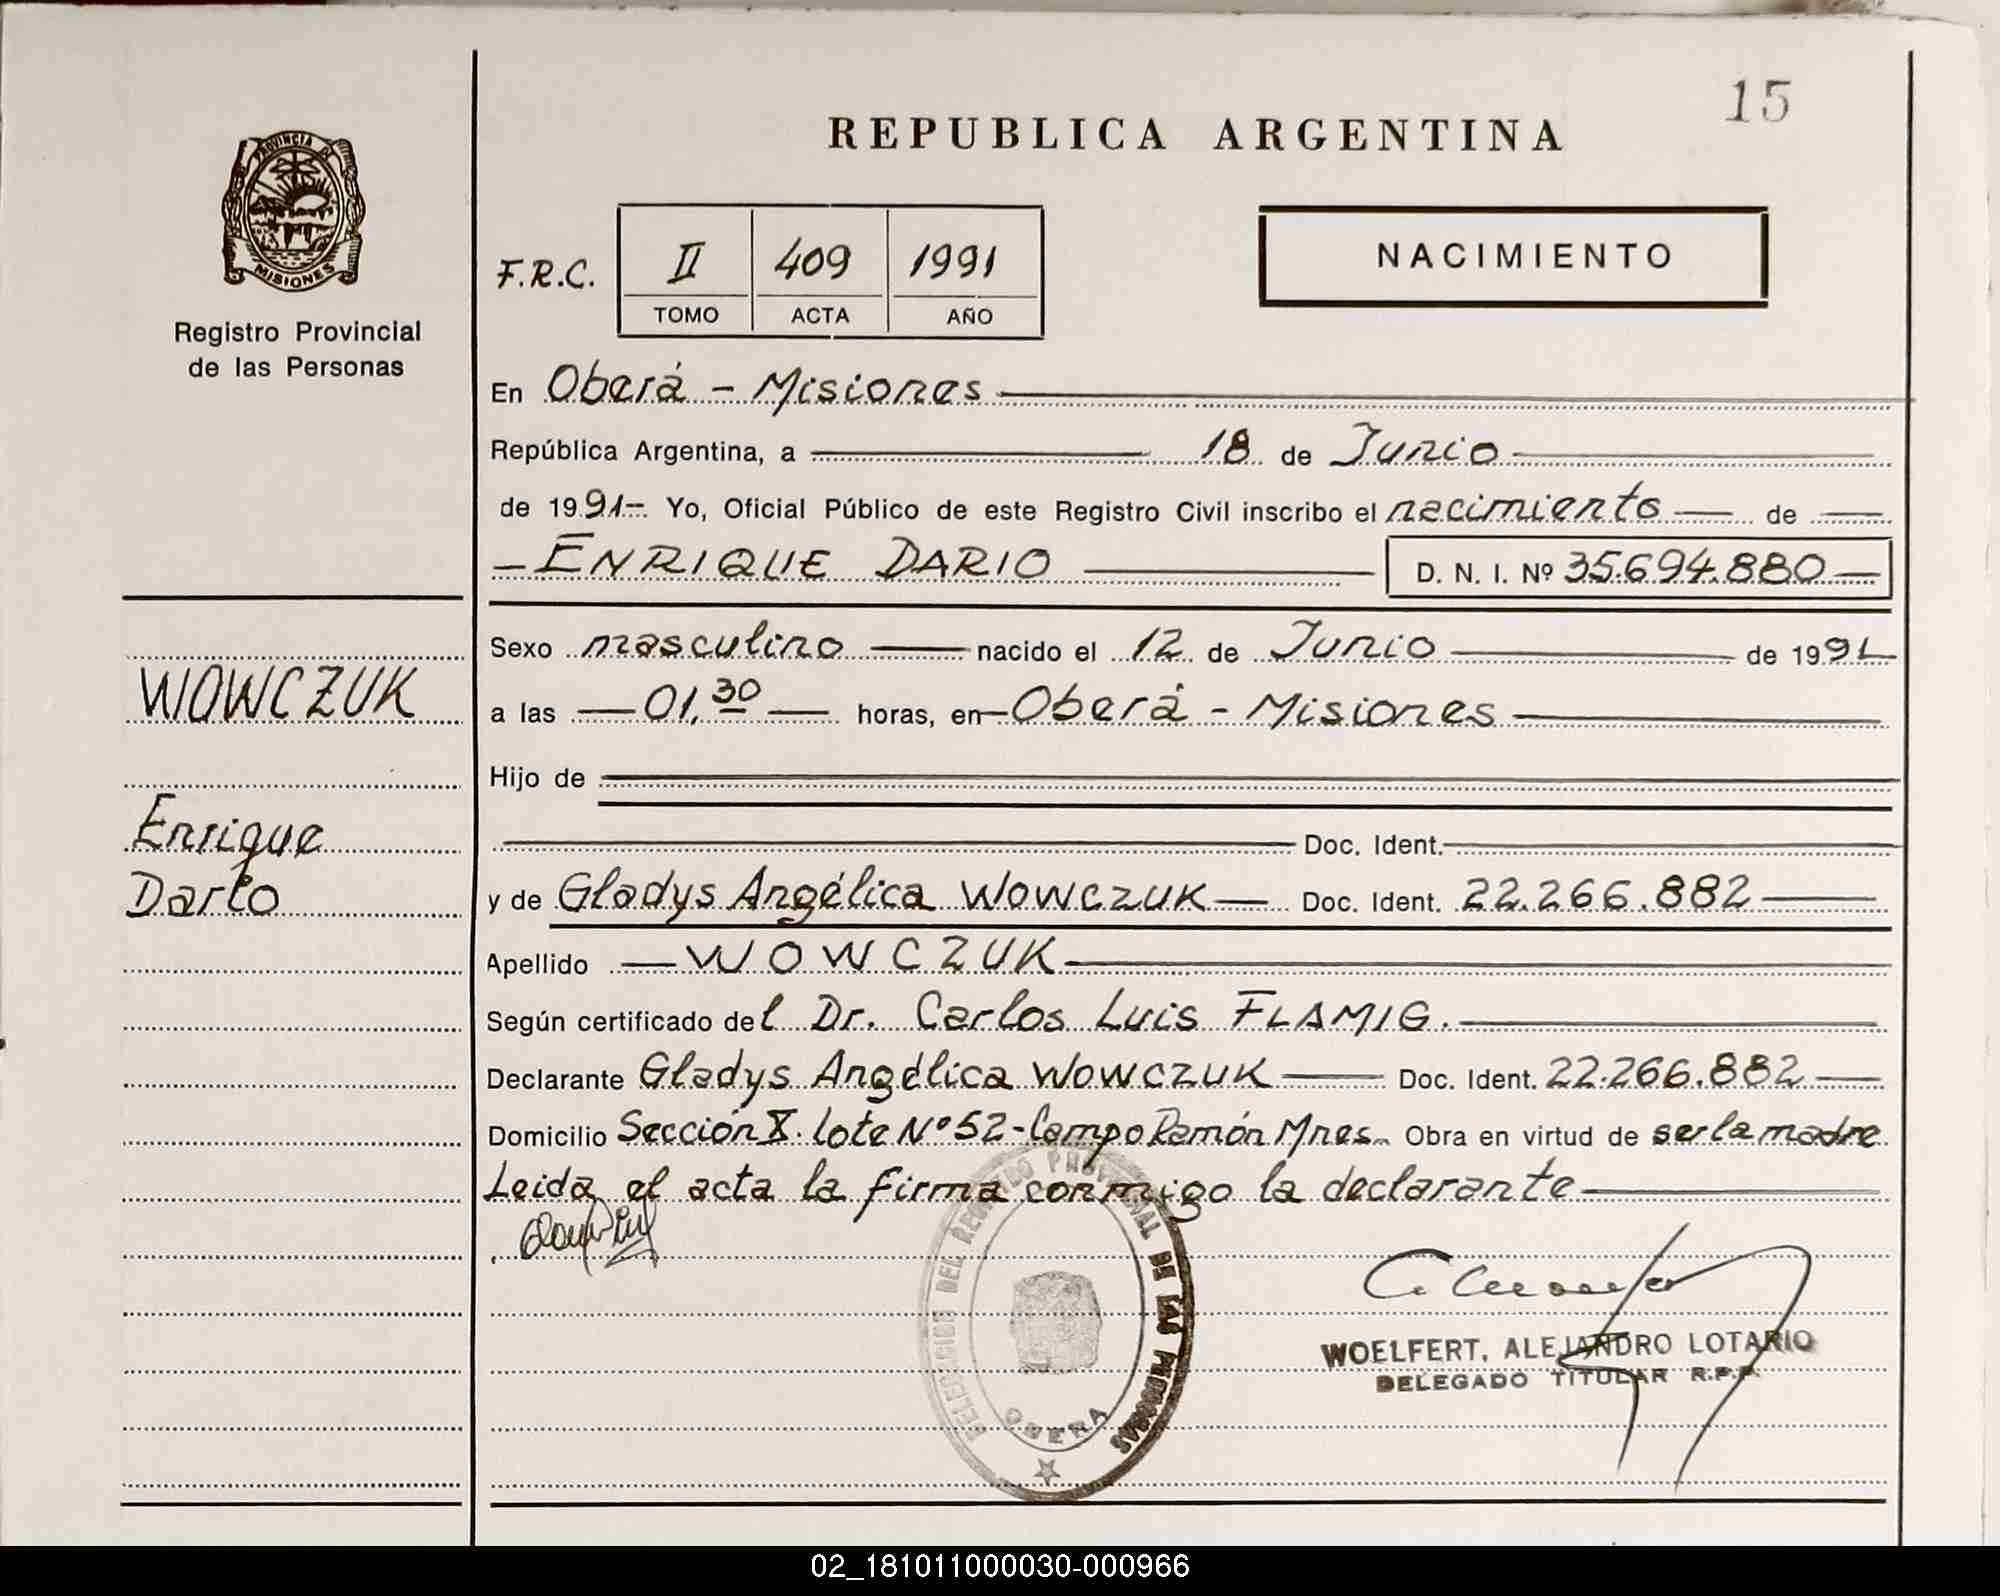 15
REPUBLICA ARGENTINA
PROVINCIA DE
MISIONES
Registro Provincial
de las Personas
F.R.C.
II 409 1991
TOMO ACTA AÑO
NACIMIENTO
En Oberá - Misiones
República Argentina, a 18 de Junio
de 1991- Yo, Oficial Público de este Registro Civil inscribo el nacimiento de
- ENRIQUE DARIO D. N. I. Nº 35.694.880
WOWCZUK
Enrique
Dario
Sexo masculino nacido el 12 de Junio de 1991
a las 01,30 horas, en Oberá - Misiones
Hijo de
Doc. Ident.
y de Gladys Angélica WOWCZUK Doc. Ident. 22.266.882
Apellido WOWCZUK
Según certificado del Dr. Carlos Luis FLAMIG.
Declarante Gladys Angélica WOWCZUK Doc. Ident. 22.266.882
Domicilio Sección X. lote Nº 52 - Campo Ramón Mnes. Obra en virtud de ser la madre
Leida el acta la firma conmigo la declarante
DELEGACION DEL REGISTRO PROVINCIAL DE LAS PERSONAS
OBERA
WOELFERT, ALEJANDRO LOTARIO
DELEGADO TITULAR R.P.P.
02_181011000030-000966